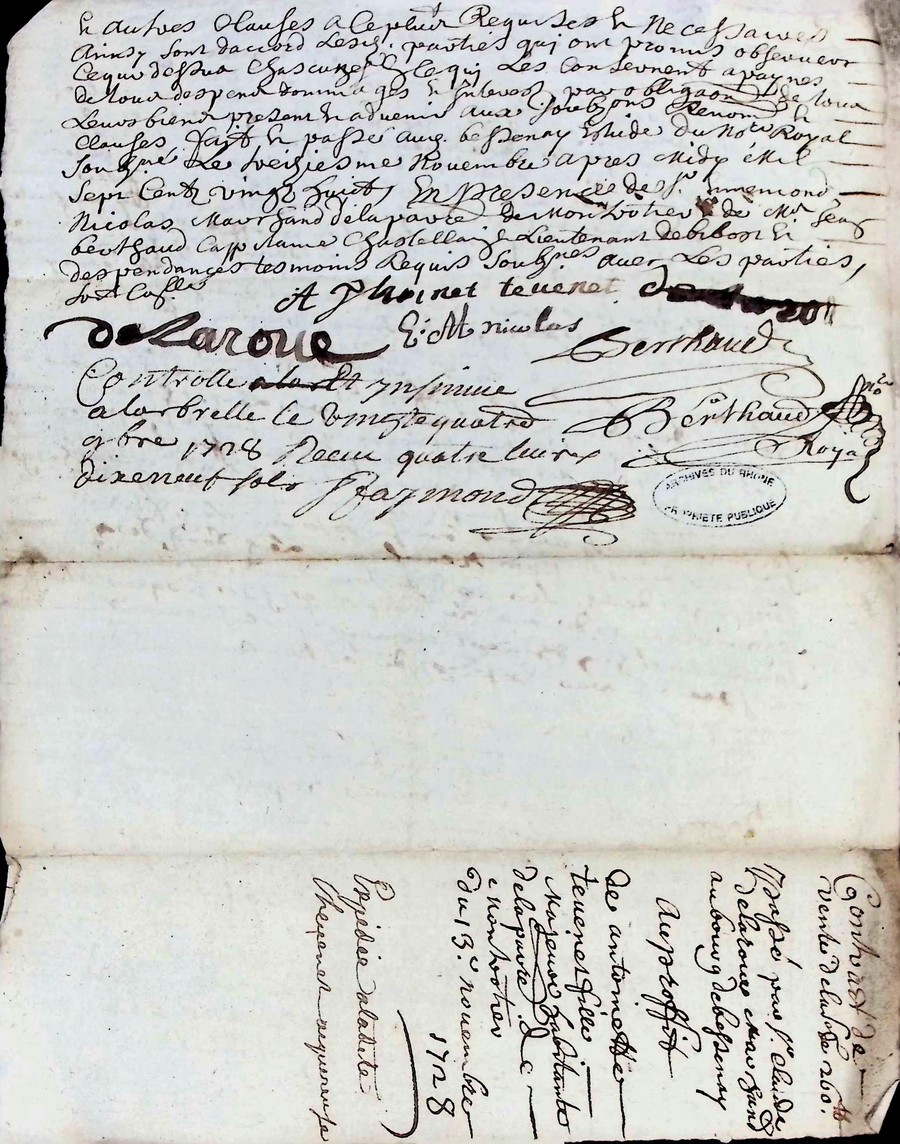 Et autres Clauses a Ce plus Requises Et Necessaires
Ainsy sont daccord Lesd. parties qui ont promis observer
Cequi dessus Chascunes Ce qui Les Consernent apaynes
de tous despens dommages Et Interest par obligaon de tous
Leurs biens present Et advenir aux Renom. Et
Clauses fait Et passé aud. bessenay Estude du Nore Royal
soubsné Le treisiesme Novembre apres Midy Mil
sept Centz vingt huict, En presence de sr. Ennemond
Nicolas Marchand de la paroe de Montrotier & de Mr Jean
berthaud Cappitaine Chastellain & Lieutenant de bibost Et
despendances tesmoins Requis soubsnes avec Les parties,
A thoinet tevenet
de Laroue E. M nicolas
Berthaud
Controllé a lar Et insinué
a larbrelle le vingt quatre
9bre 1728 Receu quatre livres
dixneuf sols Raymond
Berthaud
Royal
ARCHIVES DU RHONE
PROPRIETE PUBLIQUE
Contract de
vente de la so. de 260.
passé par sr. claude
delaroue Marchand
aubourg debessenay
auproffit
de antoinette
tevenet fille
Majeure habitante
de laparre de
montrotier
du 13e novembre
1728
Expedié aladite
thevenet requerente